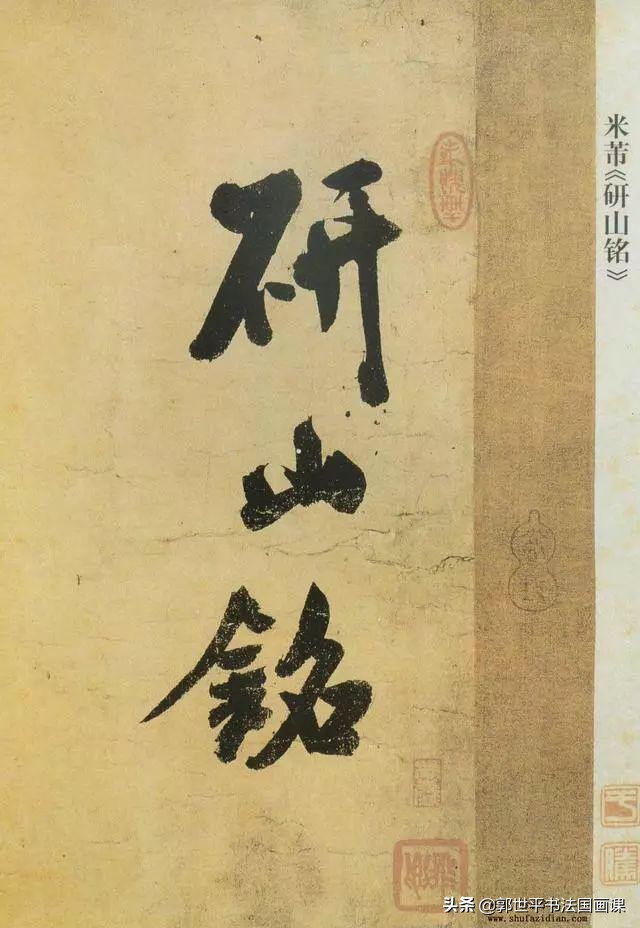 米芾《研山铭》
研山銘
头条 @郭世平书法国画课
www.shufazidian.com